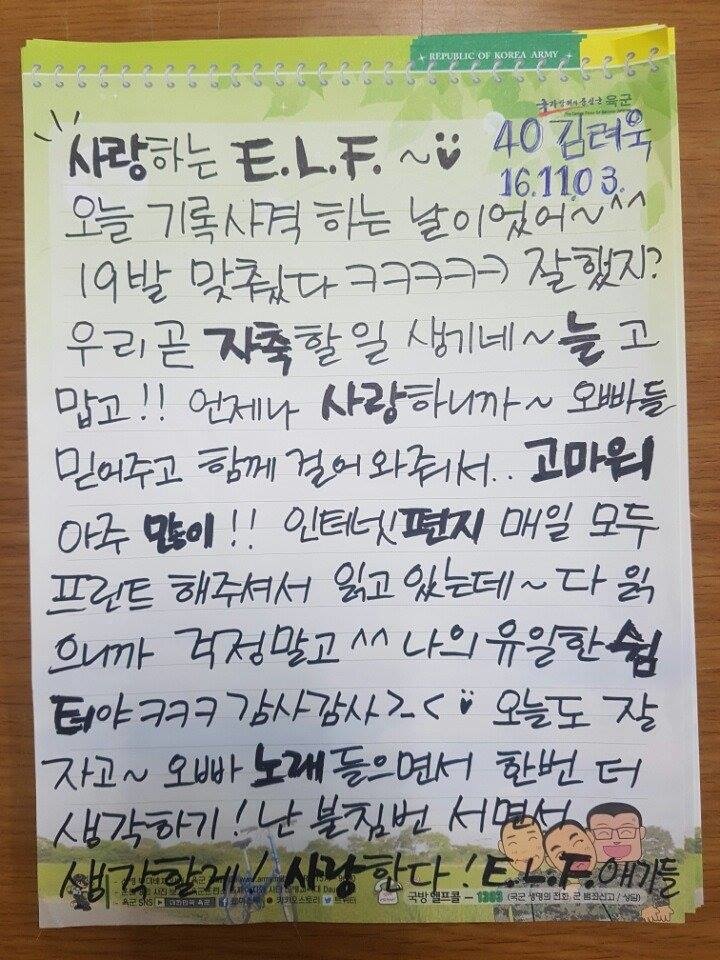 REPUBLIC OF KOREA ARMY
육군
40 김려욱
16.11.03.
사랑하는 E.L.F. ~
오늘 기록사격 하는 날이었어~^^
19발 맞췄다 ㅋㅋㅋㅋㅋ 잘했지?
우리 곧 자축할 일 생기네~ 늘 고
맙고!! 언제나 사랑하니까~ 오빠들
믿어주고 함께 걸어와줘서.. 고마워
아주 많이!! 인터넷편지 매일 모두
프린트 해주셔서 읽고있는데~ 다 읽
으니까 걱정말고 ^^ 나의 유일한 쉼
터야 ㅋㅋㅋ 감사감사 >_< 오늘도 잘
자고~ 오빠 노래 들으면서 한번 더
생각하기! 난 불침번 서면서
생각할게! 사랑한다! E.L.F. 애기들
육군 SNS 대한민국 육군 카카오스토리 트위터
국방헬프콜 - 1303 (국군 생명의 전화, 군 범죄신고 / 상담)